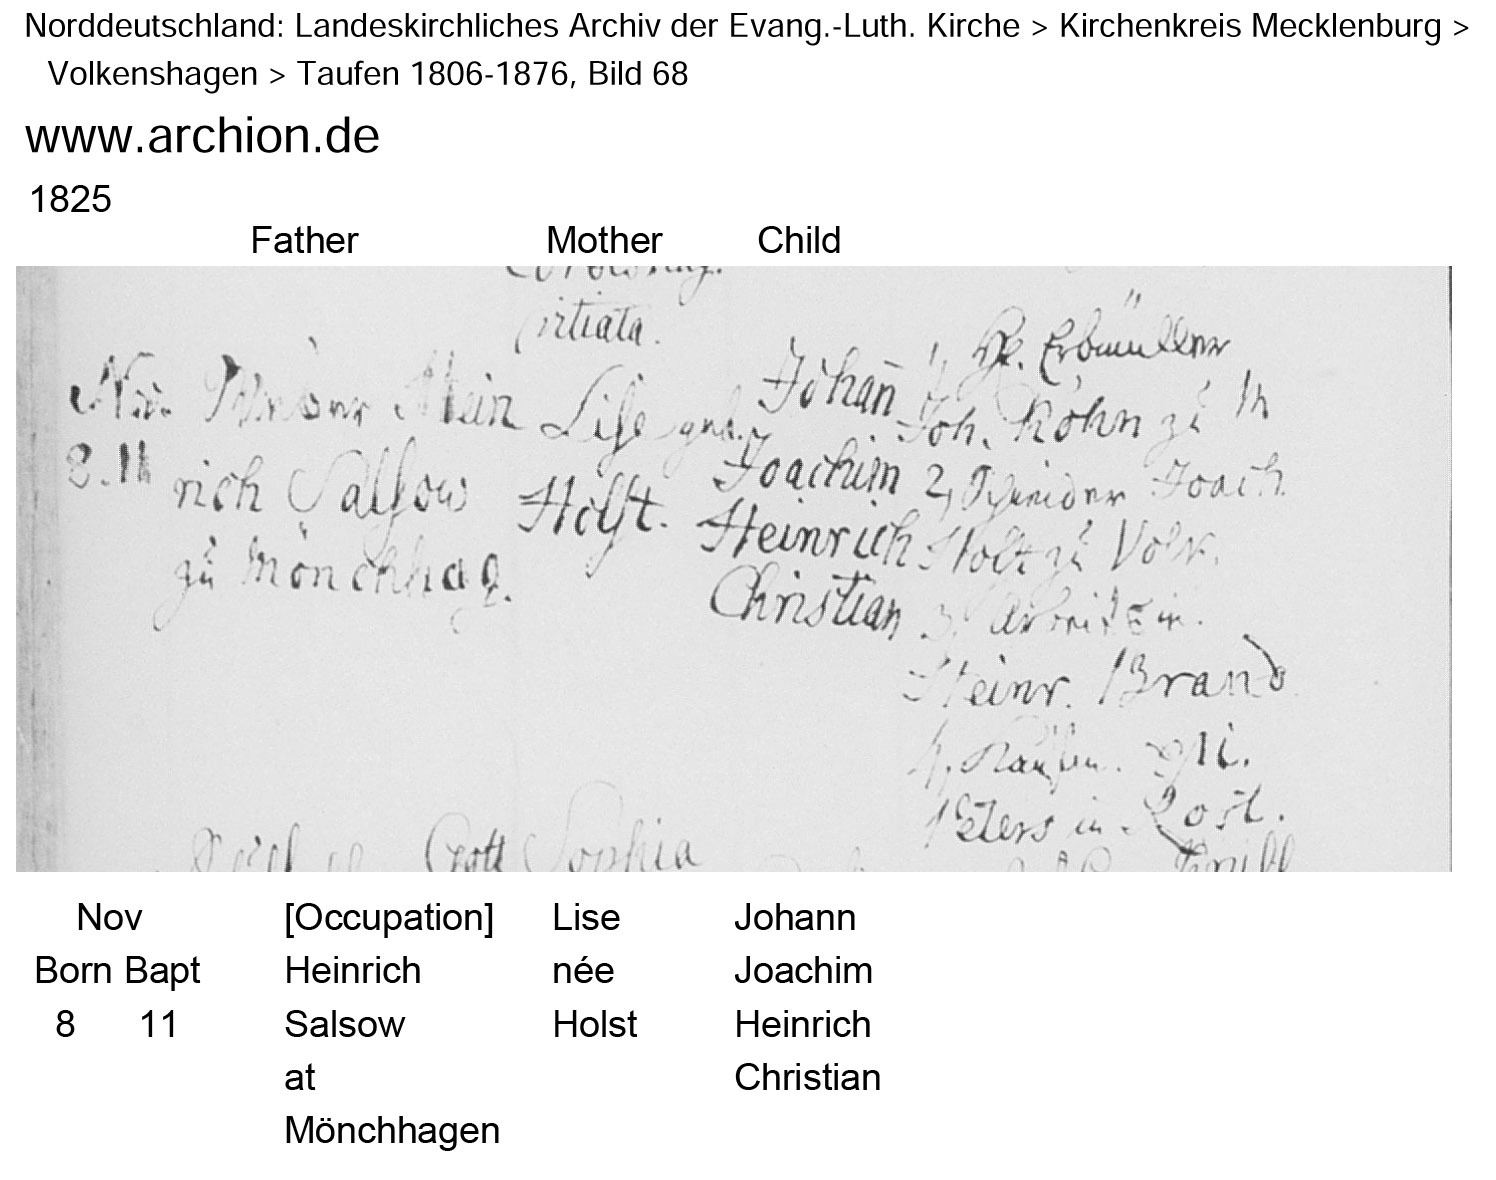 Norddeutschland: Landeskirchliches Archiv der Evang.-Luth. Kirche > Kirchenkreis Mecklenburg >
Volkenshagen > Taufen 1806-1876, Bild 68
www.archion.de
1825
Father Mother Child
Hr. Erbmüller
Nov. Weber Hein Lise geb. Johan̄ 1, Joh. Röhn zu M
8. 11 rich Salsow Holst. Joachim 2, Schneider Joach.
zu Mönchhag. Heinrich Holtz zu Volk.
Christian 3,
Heinr. Brand
4. Kaufm.
Peters in Rost.
Gott Sophia
Nov [Occupation] Lise Johann
Born Bapt Heinrich née Joachim
8 11 Salsow Holst Heinrich
at Christian
Mönchhagen